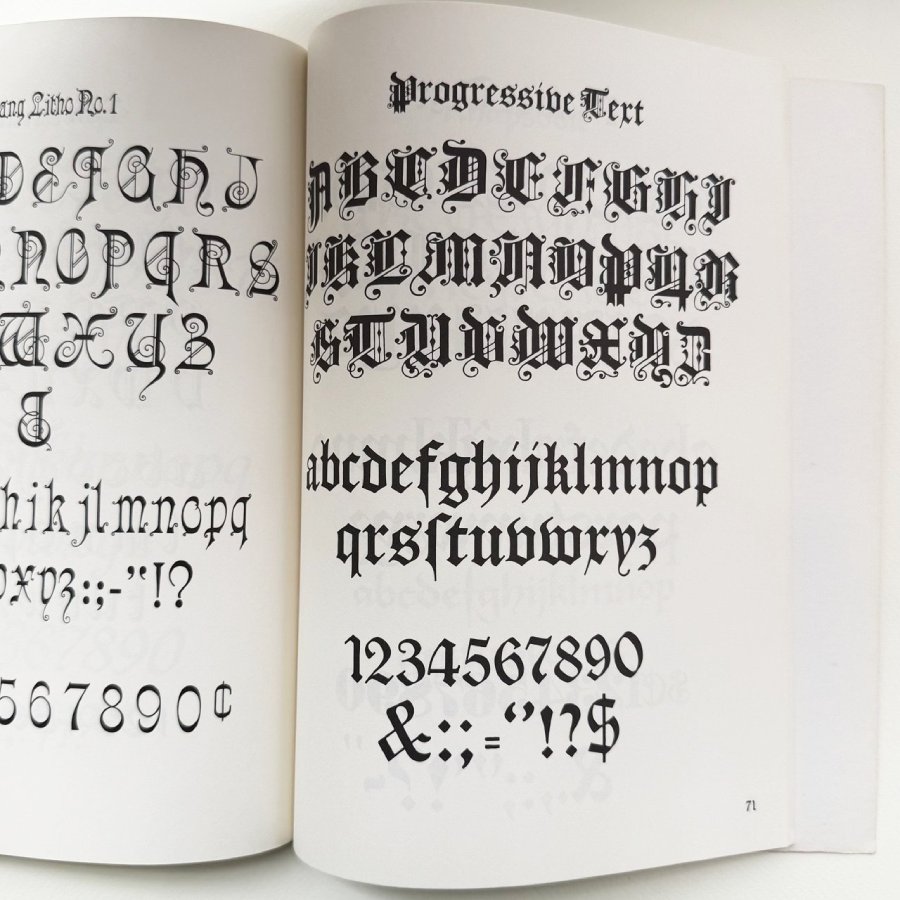 Litho No.1
DEFGHJ
NOPQRS
WXYZ
&
hikjlmnopq
xyz:;-"!?
567890¢
Progressive Text
ABCDEFGHI
JKLMNOPQR
STUVWXYZ
abcdefghijklmnop
qrsſtuvwxyz
1234567890
&:;=‘’!?$
71